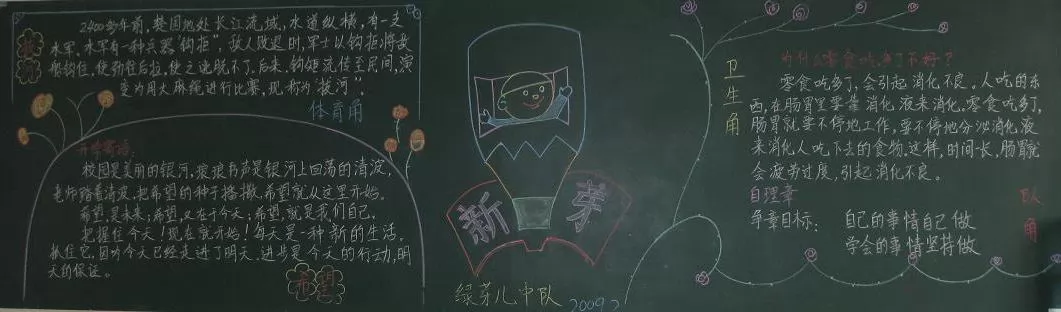 2400多年前，楚国地处长江流域，水道纵横，有一支
水军，水军有一种兵器“钩拒”，敌人败退时，军士以钩拒将敌
船钩住，使劲往后拉，使之逃脱不了。后来，钩矩流传至民间，演
变为用大麻绳进行比赛，现称为“拔河”。
体育角
开学寄语：
校园是美丽的银河，琅琅书声是银河上回荡的清波，
老师踏着清波，把希望的种子播撒，希望就从这里开始。
希望，是未来；希望，又在于今天；希望，就是我们自己。
把握住今天！现在就开始！每天是一种新的生活，
抓住它，因为今天已经走进了明天。进步是今天的行动，明
天的保证。
希望
新芽
绿芽儿中队 2009.2
卫生角
为什么零食吃多了不好？
零食吃多了，会引起消化不良。人吃的东
西，在肠胃里要靠消化液来消化。零食吃多了，
肠胃就要不停地工作，要不停地分泌消化液
来消化人吃下去的食物。这样，时间长，肠胃就
会疲劳过度，引起消化不良。
自理章
争章目标： 自己的事情自己做
学会的事情坚持做
队角